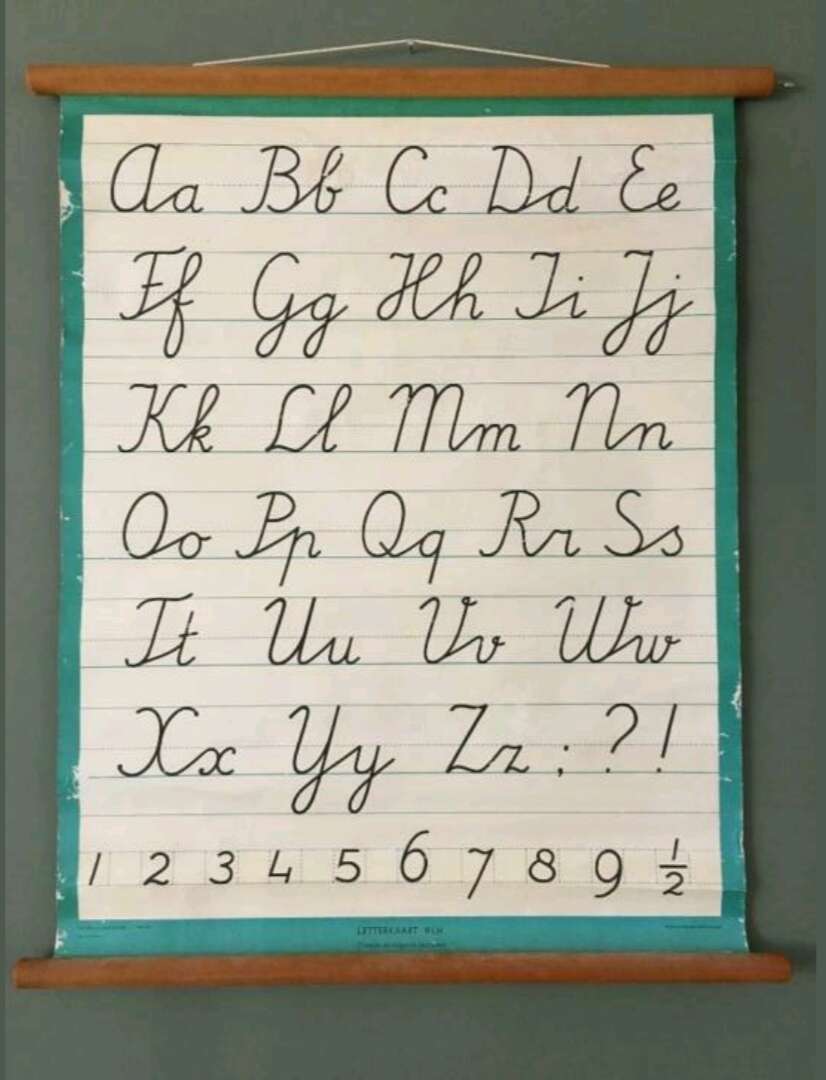 Aa Bb Cc Dd Ee
Ff Gg Hh Ii Jj
Kk Ll Mm Nn
Oo Pp Qq Rr Ss
Tt Uu Vv Ww
Xx Yy Zz ; ? !
1 2 3 4 5 6 7 8 9 1/2
LETTERKAART